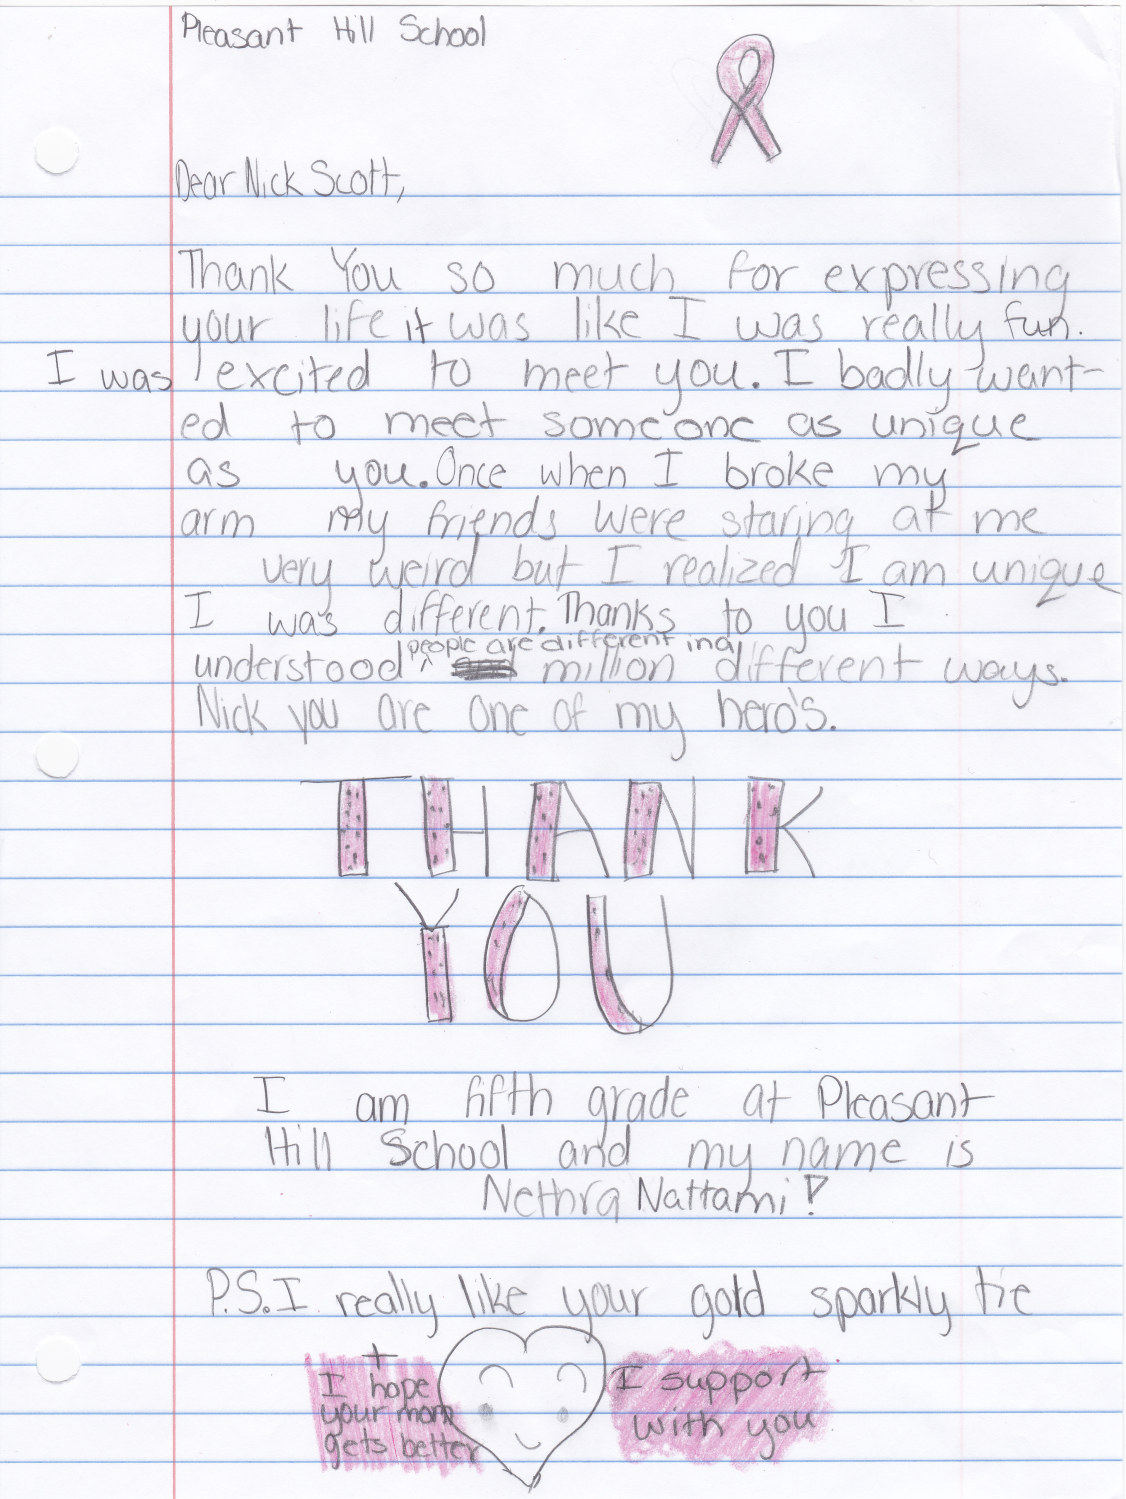 Pleasant Hill School
Dear Nick Scott,
Thank You so much for expressing
your life it was like I was really fun.
I was excited to meet you. I badly want-
ed to meet someone as unique
as you. Once when I broke my
arm my friends were staring at me
very weird but I realized I am unique
I was different. Thanks to you I
understood people are different in a million different ways.
Nick you are one of my hero's.
THANK
YOU
I am fifth grade at Pleasant
Hill School and my name is
Nethra Nattami!
P.S. I really like your gold sparkly tie
+
I hope
your mom
gets better
I support
with you